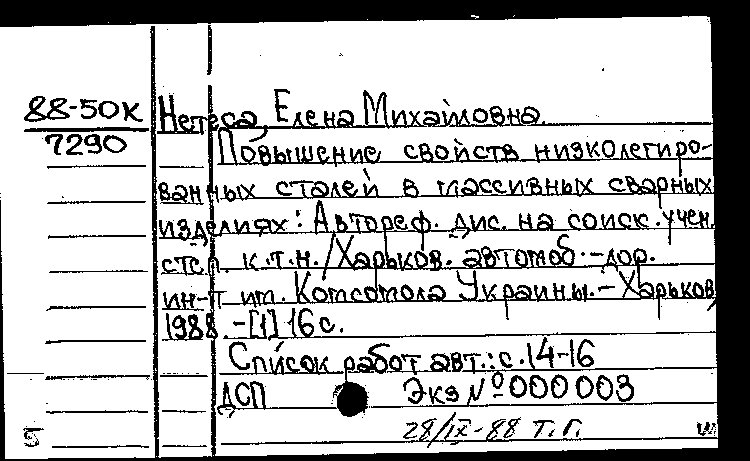 88-50к
7290
Нетеса, Елена Михайловна.
Повышение свойств низколегиро-
ванных сталей в массивных сварных
изделиях: Автореф. дис. на соиск. учен.
степ. к.т.н. / Харьков. автомоб.-дор.
ин-т им. Комсомола Украины. - Харьков,
1988. - [1] 16 с.
Список работ авт.: с. 14-16
ДСП Экз № 000 003
28/IX-88 Т.Г.